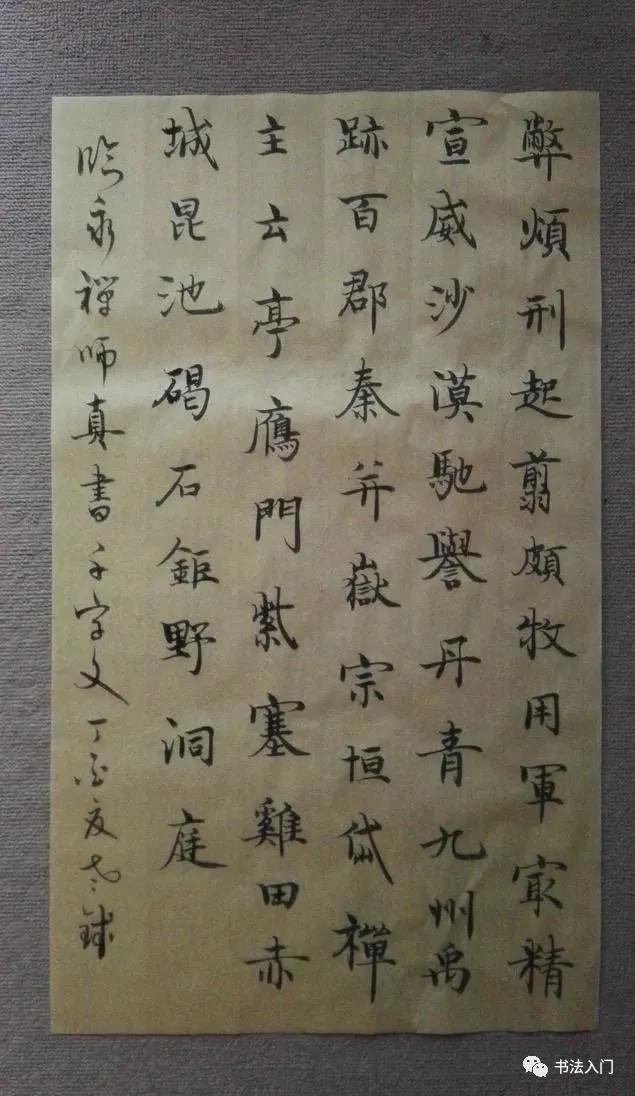 弊煩刑起翦頗牧用軍㝡精
宣威沙漠馳譽丹青九州禹
跡百郡秦并嶽宗恒岱禪
主云亭鴈門紫塞雞田赤
城昆池碣石鉅野洞庭
臨永禪師真書千字文丁酉夏
书法入门